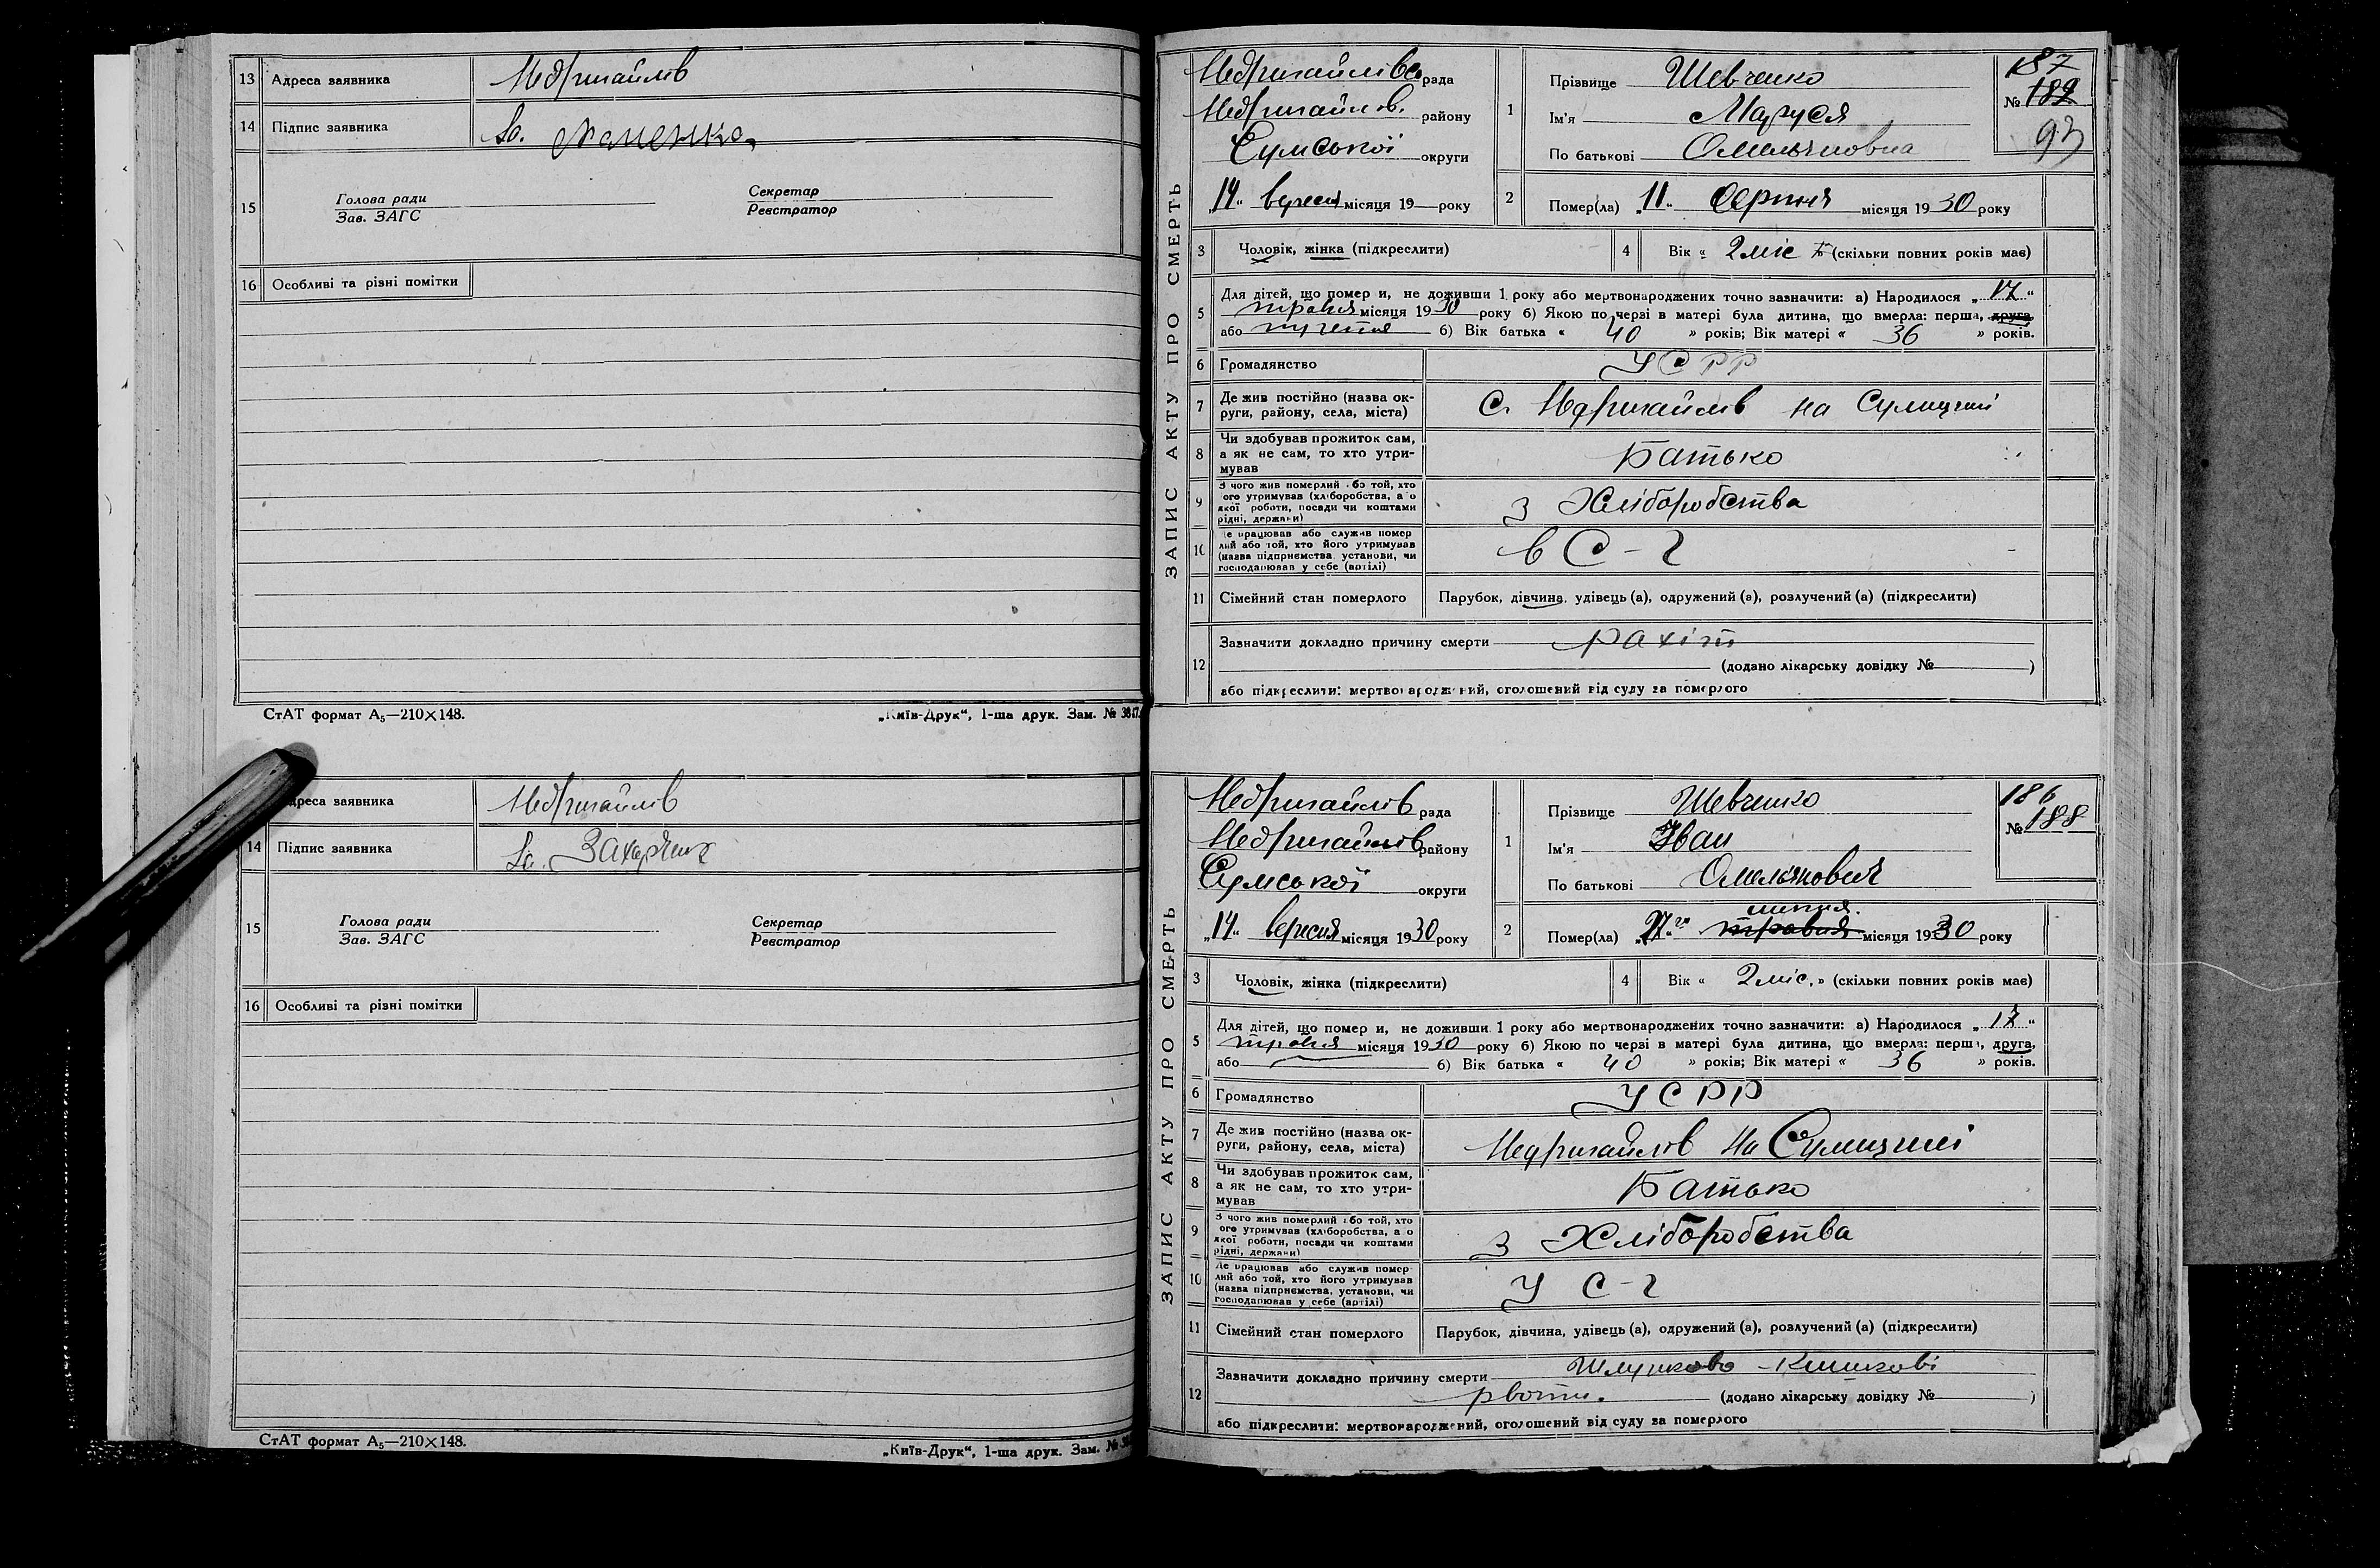 13 Адреса заявника Недригайлів
14 Підпис заявника За.
15 Голова ради Секретар
Зав. ЗАГС Реєстратор
16 Особливі та різні помітки
СтАТ формат А₅—210×148. „Київ-Друк“, 1-ша друк. Зам. №
Адреса заявника Недригайлів
14 Підпис заявника За.
15 Голова ради Секретар
Зав. ЗАГС Реєстратор
16 Особливі та різні помітки
СтАТ формат А₅—210×148. „Київ-Друк“, 1-ша друк. Зам. №
ЗАПИС АКТУ ПРО СМЕРТЬ
Недригайлівс рада
Недригайлов. району
Сумської округи
„14“ вересня місяця 19 року
1 Прізвище Шевченко
Ім'я Маруся
По батькові Омельяновна
187
№ 189
93
2 Помер(ла) „11“ Серпня місяця 1930 року
3 Чоловік, жінка (підкреслити)
4 Вік « 2 міс » (скільки повних років має)
5 Для дітей, що померли, не доживши 1 року або мертвонароджених точно зазначити: а) Народилося „17“
травня місяця 1930 року б) Якою по черзі в матері була дитина, що вмерла: перша, друга,
або 6) Вік батька « 40 » років; Вік матері « 36 » років.
6 Громадянство УСРР
7 Де жив постійно (назва округи, району, села, міста) С. Недригайлів на Сумщині
8 Чи здобував прожиток сам, а як не сам, то хто утримував Батько
9 З чого жив померлий або той, хто його утримував (хліборобства, або якої роботи, посади чи коштами рідні, держави) З Хліборобства
10 Де працював або служив померлий або той, хто його утримував (назва підприємства, установи, чи господарював у себе (артілі) в С-г
11 Сімейний стан померлого Парубок, дівчина, удівець (а), одружений (а), розлучений (а) (підкреслити)
12 Зазначити докладно причину смерти рахіт
(додано лікарську довідку № )
або підкреслити: мертвонароджений, оголошений від суду за померлого
ЗАПИС АКТУ ПРО СМЕРТЬ
Недригайлів рада
Недригайлів району
Сумської округи
„14“ вересня місяця 1930 року
1 Прізвище Шевченко
Ім'я Іван
По батькові Омелянович
186
№ 188
липня.
2 Помер(ла) травня місяця 1930 року
3 Чоловік, жінка (підкреслити)
4 Вік « 2 міс. » (скільки повних років має)
5 Для дітей, що померли, не доживши 1 року або мертвонароджених точно зазначити: а) Народилося „17“
травня місяця 1930 року б) Якою по черзі в матері була дитина, що вмерла: перша, друга,
або 6) Вік батька « 40 » років; Вік матері « 36 » років.
6 Громадянство УСРР
7 Де жив постійно (назва округи, району, села, міста) Недригайлів На Сумщині
8 Чи здобував прожиток сам, а як не сам, то хто утримував Батько
9 З чого жив померлий або той, хто його утримував (хліборобства, або якої роботи, посади чи коштами рідні, держави) З Хліборобства
10 Де працював або служив померлий або той, хто його утримував (назва підприємства, установи, чи господарював у себе (артілі) У С-г
11 Сімейний стан померлого Парубок, дівчина, удівець (а), одружений (а), розлучений (а) (підкреслити)
12 Зазначити докладно причину смерти Шлунково-Кишкові
рвоти. (додано лікарську довідку № )
або підкреслити: мертвонароджений, оголошений від суду за померлого